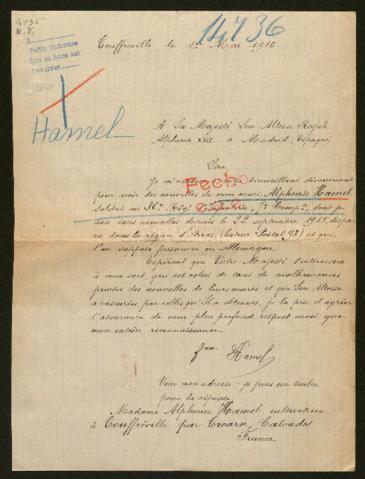 14736
Touffréville le 1er Mai 1916
Hamel
A Sa Majesté Son Altesse Royale
Alphonse XIII à Madrid, Espagne
Sire
Je m'adresse bienveillant dévouement
pour avoir des nouvelles de mon mari, Alphonse Hamel
soldat au 36e Rég. d'Infanterie,
sans nouvelles depuis le 25 septembre 1915, dispa
dans la région d'Arras (Secteur Postal 93) et que
l'on suppose prisonnier en Allemagne.
Fecho
Espérant que Votre Majesté s'intéressera
à mon sort, qui est celui de tant de malheureuses
privées des nouvelles de leurs maris et que Son Altesse
a rassurées par celles qu'Elle a obtenues, je la prie d'agréer
l'assurance de mon plus profond respect ainsi que
mon entière reconnaissance.
Hamel
Voici mon adresse je joins un timbre
pour la réponse
Madame Alphonse Hamel cultivatrice
à Touffréville par Troarn, Calvados
France